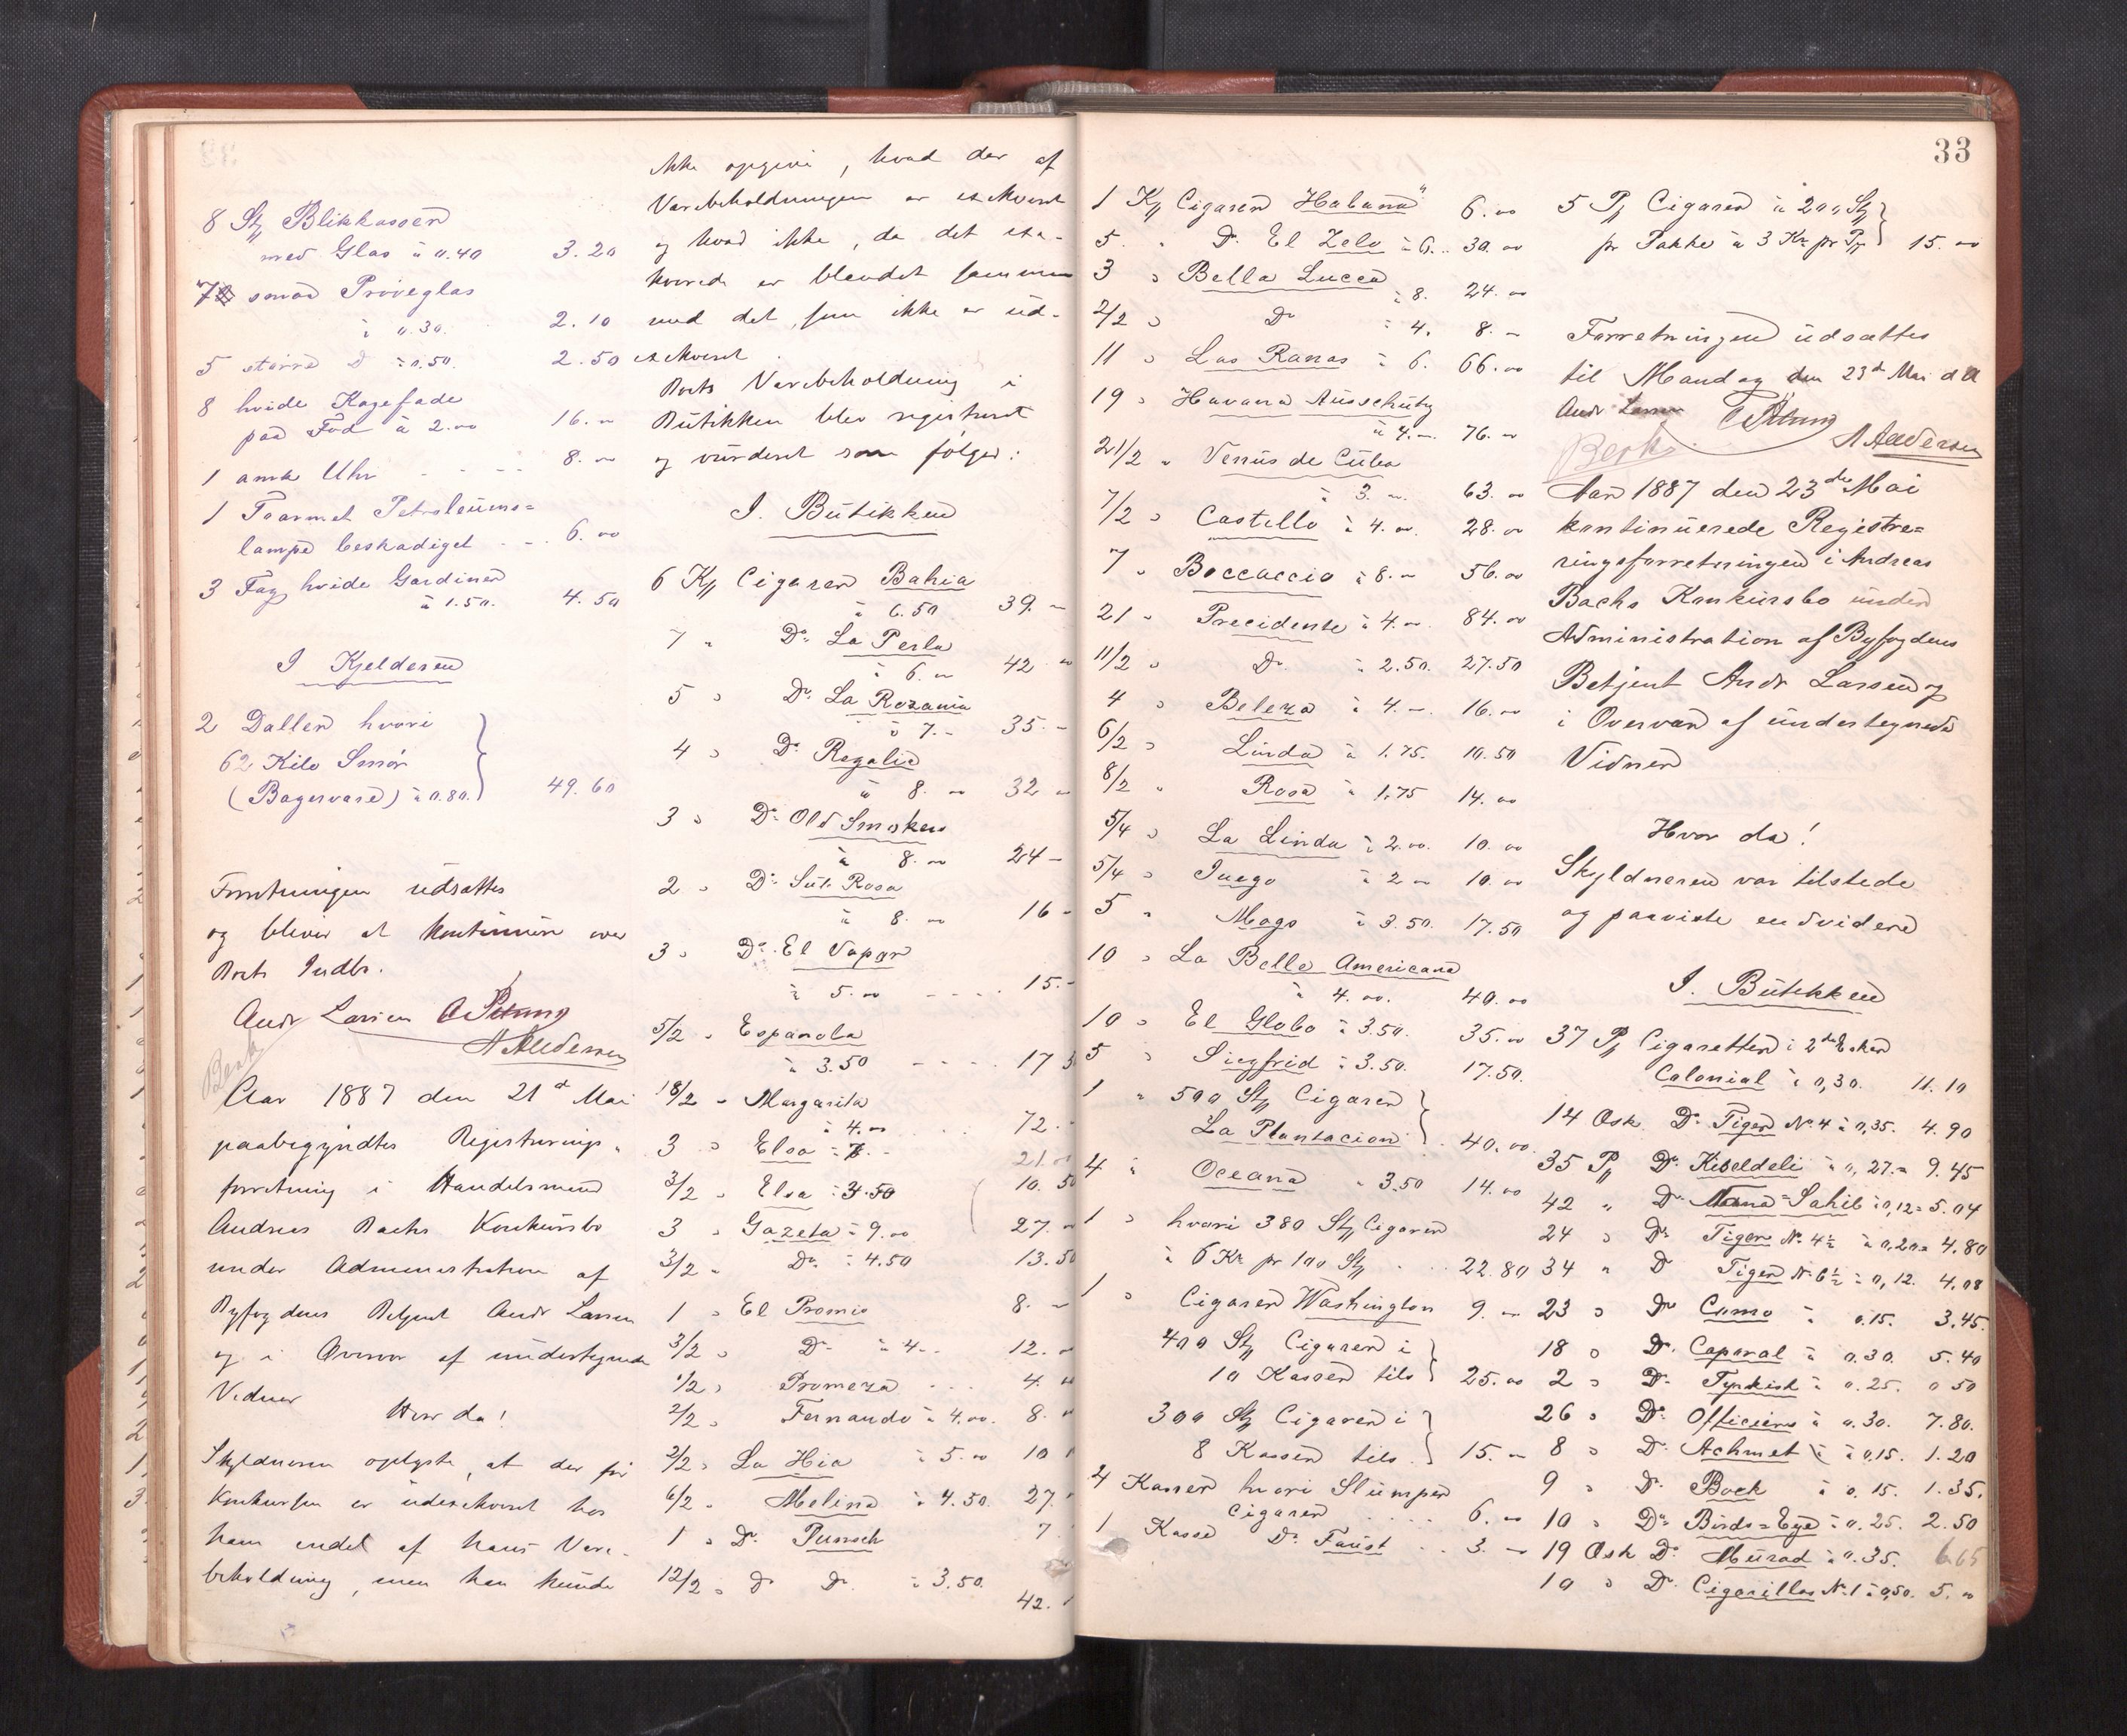 8 Stk Blikkasser
med Glas à 0.40 3.20
7 smaa Prøveglas
à 0.30. 2.10
5 større D à 0.50. 2.50
8 hvide Kagefade
paa Fod à 2.00 16. "
1 amk Uhr - - - 8. "
1 Toarmet Petroleums=
lampe beskadiget - - 6.00
3 Fag hvide Gardiner
à 1.50. 4.50
I Kjelderen
2 Daller hvori
62 Kilo Smør
(Bagervare) à 0.80. 49.60
Forretningen udsattes
og bliver at kontinuere over
Boets Indbo.
Andr Larsen
N Andersen
Aar 1887 den 21de Mai
paabegyndtes Registrerings-
forretning i Handelsmand
Andreas Bachs Konkursbo
under Administration af
Byfogdens Betjent Andr Larsen
og i Overvær af undertegnede
Vidner
Hvor da!
Skyldneren oplyste, at der før
Konkursen er udexekveret hos
ham endel af hans Vare-
beholdning, men han kunde
ikke opgive, hvad der af
Varebeholdningen er exekveret
og hvad ikke, da det exe-
kverede er blandet sammen
med det, som ikke er ud-
exekveret.
Boets Varebeholdning i
Butikken blev registreret
og vurderet som følger:
I. Butikken
6 Ks Cigarer Bahia
à 6.50 39. "
7 " Do La Perla
à 6. " 42 "
5 " Do La Rozania
à 7. - 35. -
4 " Do Regalia
à 8. " 32 "
3 " Do Old Smokers
à 8. " 24 -
2 " Do Sub Rosa
à 8. " 16 -
3 " Do El Vapor
à 5. " - - - 15. -
5/2 " Espanola
à 3.50 - - - 17 5
18/2 " Margarita
à 4. " 72. -
3 " Elsa à 7. - 21.
3/2 " Elsa à 3.50 10. 50
3 " Gazela à 9.00 27. "
3/2 " Do à 4.50 13.50
1 " El Promio 8. -
3/2 " Do à 4 - 12. "
1/2 " Promeza - - - 4. "
2/2 " Fernando à 4.00. 8. "
2/2 " La Hia à 5. " 10
6/2 " Melina à 4.50. 27.
1 " Do Punsch 7.
12/2 " Do Do à 3.50.
42.
33
1 Ks Cigarer "Habana" 6. "
5. " Do El Zelo à 6.. 30. "
3 " Bella Lucca
à 8. 24. "
2/2 " Do à 4. 8. -
11 " Las Ranas à 6. 66. "
19 " Havana Ausschutz
à 4. -. 76. "
21/2 " Venus de Cuba
à 3. ". 63. "
7/2 " Castello à 4. ". 28. "
7 " Boccaccio à 8. " 56. "
21 " Precidente à 4. " 84. "
11/2 " Do à 2.50. 27.50
4 " Beleza à 4. -. 16. "
6/2 " Linda à 1.75. 10.50
8/2 " Rosa à 1.75 14. "
5/4 " La Linda à 2.00. 10. "
5/4 " Juego à 2 " 10. "
5 " Mago à 3.50. 17.50
10 " La Bella Americana
à 4.00. 40. "
10 " El Globo à 3.50. 35. "
5 " Siegfrid à 3.50. 17.50.
1 " 500 Stk Cigarer
La Plantacion 40. "
4 " Oceana à 3.50 14. "
1 " hvori 380 Stk Cigarer
à 6 Kr pr 100 Stk 22.80
1 " Cigarer Washington 9. -
400 Stk Cigarer i
10 Kasser tils 25. "
300 Stk Cigarer i
8 Kasser tils 15. -
4 Kasser hvori Slumper
Cigarer - - - - 6. "
1 Kasse Do Faust - - 3. -
5 Pk Cigarer à 20 Stk
pr Pakke à 3 Kr pr Pk 15. "
Forretningen udsættes
til Mandag den 23de Mai d A
Andr Larsen
N Andersen
Aar 1887 den 23de Mai
kontinuerede Registre=
ringsforretningen i Andreas
Bachs Konkursbo under
Administration af Byfogdens
Betjent Andr Larsen og
i Overvær af undertegnede
Vidner
Hvor da!
Skyldneren var tilstede
og paaviste endvidere
I. Butikken
37 Pk Cigaretter i 2de Esker
Colonial à 0,30. 11.10
14 Esk Do Tiger No 4 à 0,35. 4.90
35 Pk Do Kiseldeli à 0,27 = 9.45
42 " Do Nana=Sahib à 0,12 = 5.04
24 " Do Tiger No 4½ à 0,20 = 4.80
34 " D Tiger No 6½ à 0,12. 4.08
23 " Do Cumo à 0.15. 3.45.
18 " Do Caporal à 0.30. 5.40
2 " Do Tyrkisk à 0.25. 0 50
26 " Do Officiers à 0.30. 7.80.
8 " Do Achmet à 0.15. 1.20
9 " Do Bock à 0.15. 1.35.
10 " Do Birds=Eye à 0.25. 2.50
19 Esk Do Murad à 0.35. 6.65
10 " Do Cigarillos No 1 à 0,50. 5. "